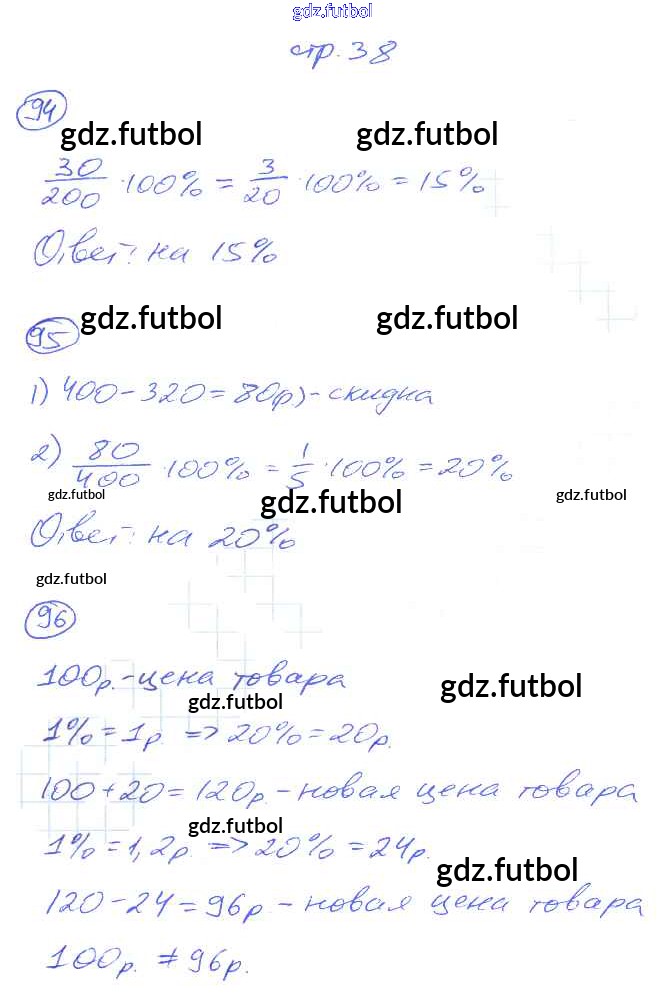 gdz.futbol
стр. 38
94
gdz.futbol gdz.futbol
30/200 · 100% = 3/20 · 100% = 15%
Ответ: на 15%
95 gdz.futbol gdz.futbol
1) 400 - 320 = 80(р) - скидка
2) 80/400 · 100% = 1/5 · 100% = 20%
gdz.futbol gdz.futbol gdz.futbol
Ответ: на 20%
gdz.futbol
96
100р. - цена товара
gdz.futbol gdz.futbol
1% = 1р. => 20% = 20р.
100 + 20 = 120р. - новая цена товара
gdz.futbol
1% = 1,2р. => 20% = 24р.
gdz.futbol
120 - 24 = 96р. - новая цена товара
100р. ≠ 96р.